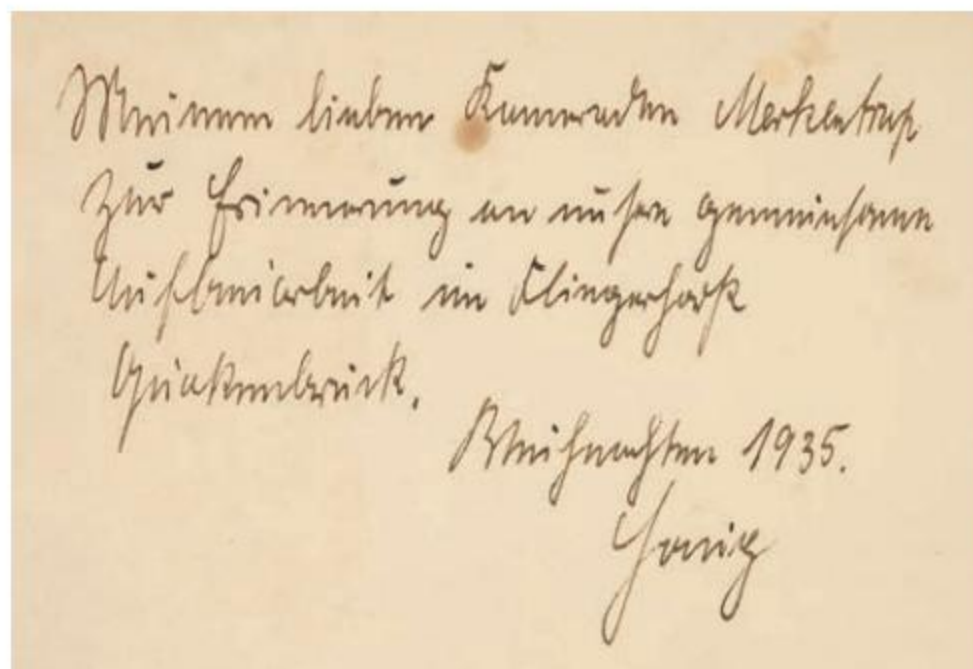 Meinem lieben Kameraden
zur Erinnerung an unsere gemeinsame
Aufbauarbeit im Fliegerhorst
Quakenbrück.
Weihnachten 1935.